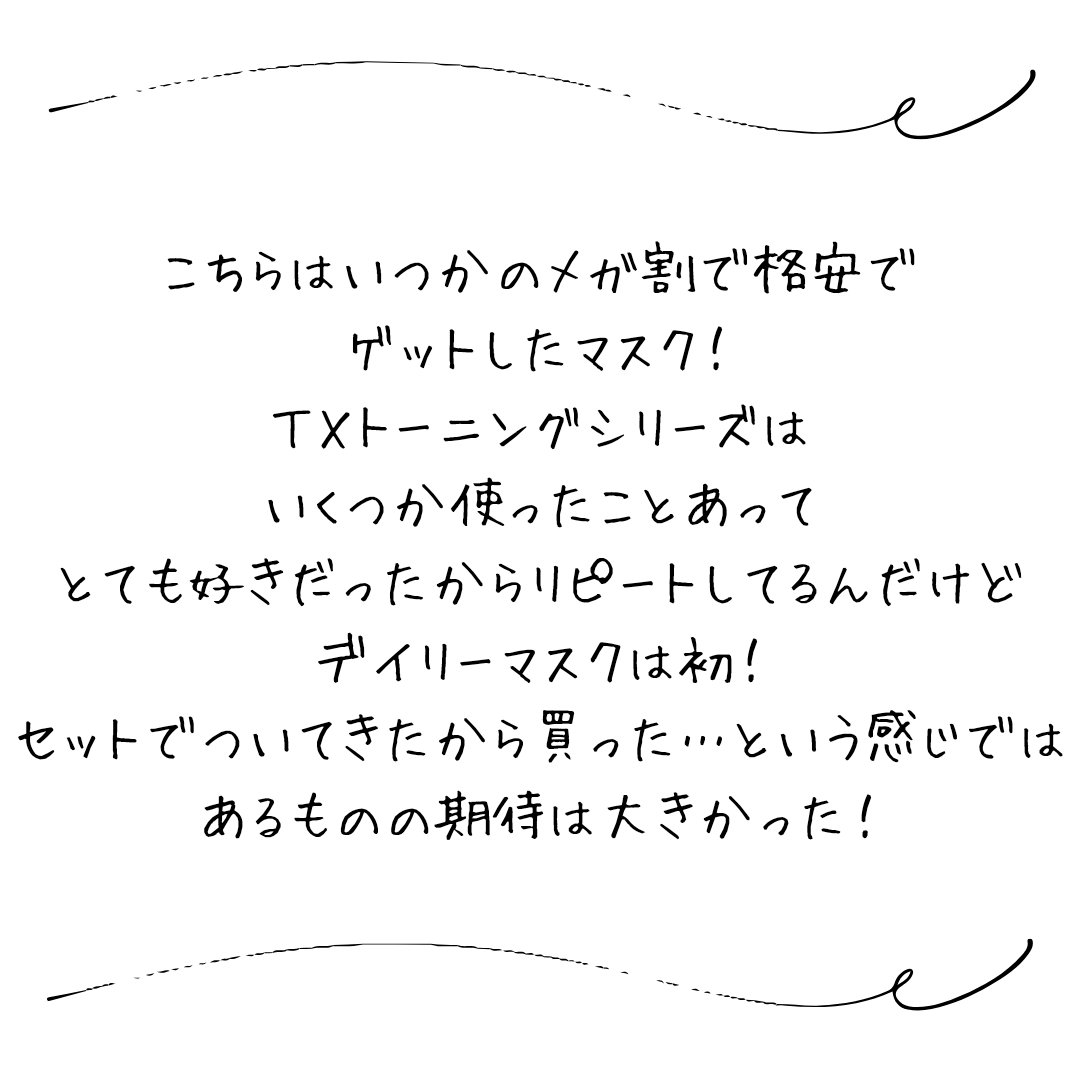 こちらはいつかのメガ割で格安で
ゲットしたマスク!
TXトーニングシリーズは
いくつか使ったことあって
とても好きだったからリピートしてるんだけど
デイリーマスクは初!
セットでついてきたから買った…という感じでは
あるものの期待は大きかった!